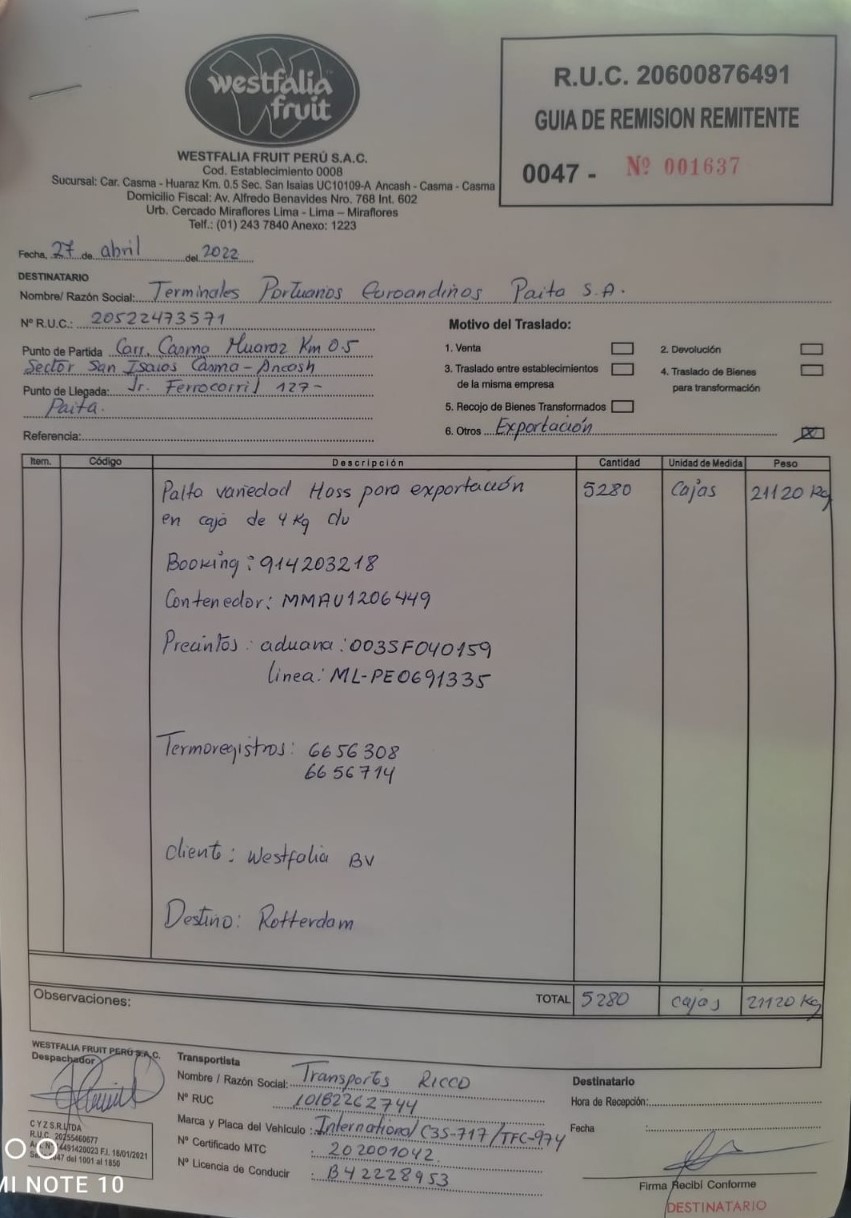 westfalia
fruit
WESTFALIA FRUIT PERÚ S.A.C.
Cod. Establecimiento 0008
Sucursal: Car. Casma - Huaraz Km. 0.5 Sec. San Isaias UC10109-A Ancash - Casma - Casma
Domicilio Fiscal: Av. Alfredo Benavides Nro. 768 Int. 602
Urb. Cercado Miraflores Lima - Lima – Miraflores
Telf.: (01) 243 7840 Anexo: 1223
R.U.C. 20600876491
GUIA DE REMISION REMITENTE
0047 - Nº 001637
Fecha, 27 de abril del 2022
DESTINATARIO
Nombre/ Razón Social: Terminales Portuarios Euroandinos Paita S.A.
Nº R.U.C.: 20522473571
Punto de Partida Carr. Casma Huaraz Km 0.5
Sector San Isaias Casma - Ancash
Punto de Llegada: Jr. Ferrocarril 127 -
Paita.
Referencia:
Motivo del Traslado:
1. Venta
2. Devolución
3. Traslado entre establecimientos
de la misma empresa
4. Traslado de Bienes
para transformación
5. Recojo de Bienes Transformados
6. Otros Exportación
Item. Código Descripción Cantidad Unidad de Medida Peso
Palta variedad Hass para exportación 5280 Cajas 21120 Kg
en caja de 4 Kg c/u
Booking: 914203218
Contenedor: MMAU1206449
Precintos: aduana: 003SF040159
linea: ML-PE0691335
Termoregistros: 6656308
6656714
Cliente: Westfalia BV
Destino: Rotterdam
Observaciones:
TOTAL 5280 cajas 21120 Kg
WESTFALIA FRUIT PERÚ S.A.C.
Despachador
Transportista
Nombre / Razón Social: Transportes RICCO
Nº RUC 10182262744
Marca y Placa del Vehículo: International C3S-717/TFC-974
Nº Certificado MTC : 202001042.
Nº Licencia de Conducir : B42228953
Destinatario
Hora de Recepción:
Fecha :
Firma Recibi Conforme
DESTINATARIO
C Y Z S.R.LTDA
R.U.C. 20255460677
4491420023 F.I. 16/01/2021
47 del 1001 al 1850
MI NOTE 10